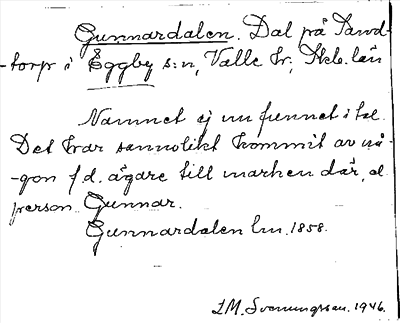 Gunnardalen. Dal på Sand-
-torp i Eggby s:n, Valle hr; Skb. län
Namnet ej nu funnet i tal.
Det har sannolikt kommit av nå-
-gon f d. ägare till marken där, el.
person Gunnar.
Gunnardalen Lm. 1858.
L M. Svenungsson. 1946.